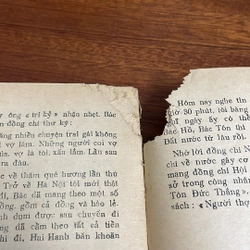 ông «tri kỷ» nhậu nhẹt. Bác
đồng chí thư ký:
nhiều chuyện trai gái không
vợ lắm. Những người coi vợ
vợ là tôi, xấu lắm. Lần sau
đâu.
về thăm quê hương lần thứ
Trở về Hà Nội tôi mới thật
đi, Bác đã mang theo một số
đồng, gồm cả đồng và hào lẻ.
dụm được sau chuyến đi
đã cầm theo tất cả tiền
đi, Hai Hanh băn khoăn
Hôm nay nghe tin
giờ 30 phút, tôi bàng
ngày ấy có thể
Bác Hồ, Bác Tôn thì
Đất nước từ lâu rồi.
Nhớ lời đồng chí N
chí về nước gây cơ
mạng đồng chí Hội
sở trong công nhân
Tôn Đức Thắng».
sách: «Người thợ